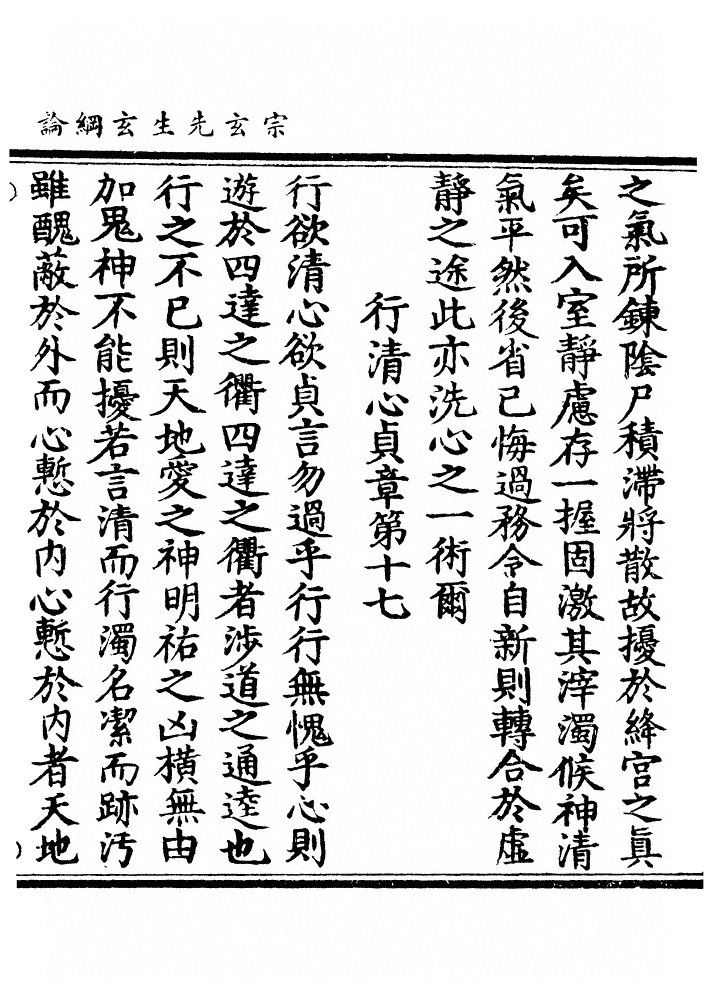 宗玄先生玄綱論
之氣所鍊陰尸積滯將散故擾於絳宮之眞
矣可入室靜慮存一握固激其滓濁候神清
氣平然後省已悔過務令自新則轉合於虛
靜之途此亦洗心之一術爾
行清心貞章第十七
行欲清心欲貞言勿過乎行行無愧乎心則
遊於四達之衢四達之衢者涉道之通逵也
行之不已則天地愛之神明祐之凶橫無由
加鬼神不能擾若言清而行濁名潔而跡汚
雖醜蔽於外而心慙於內心慙於內者天地